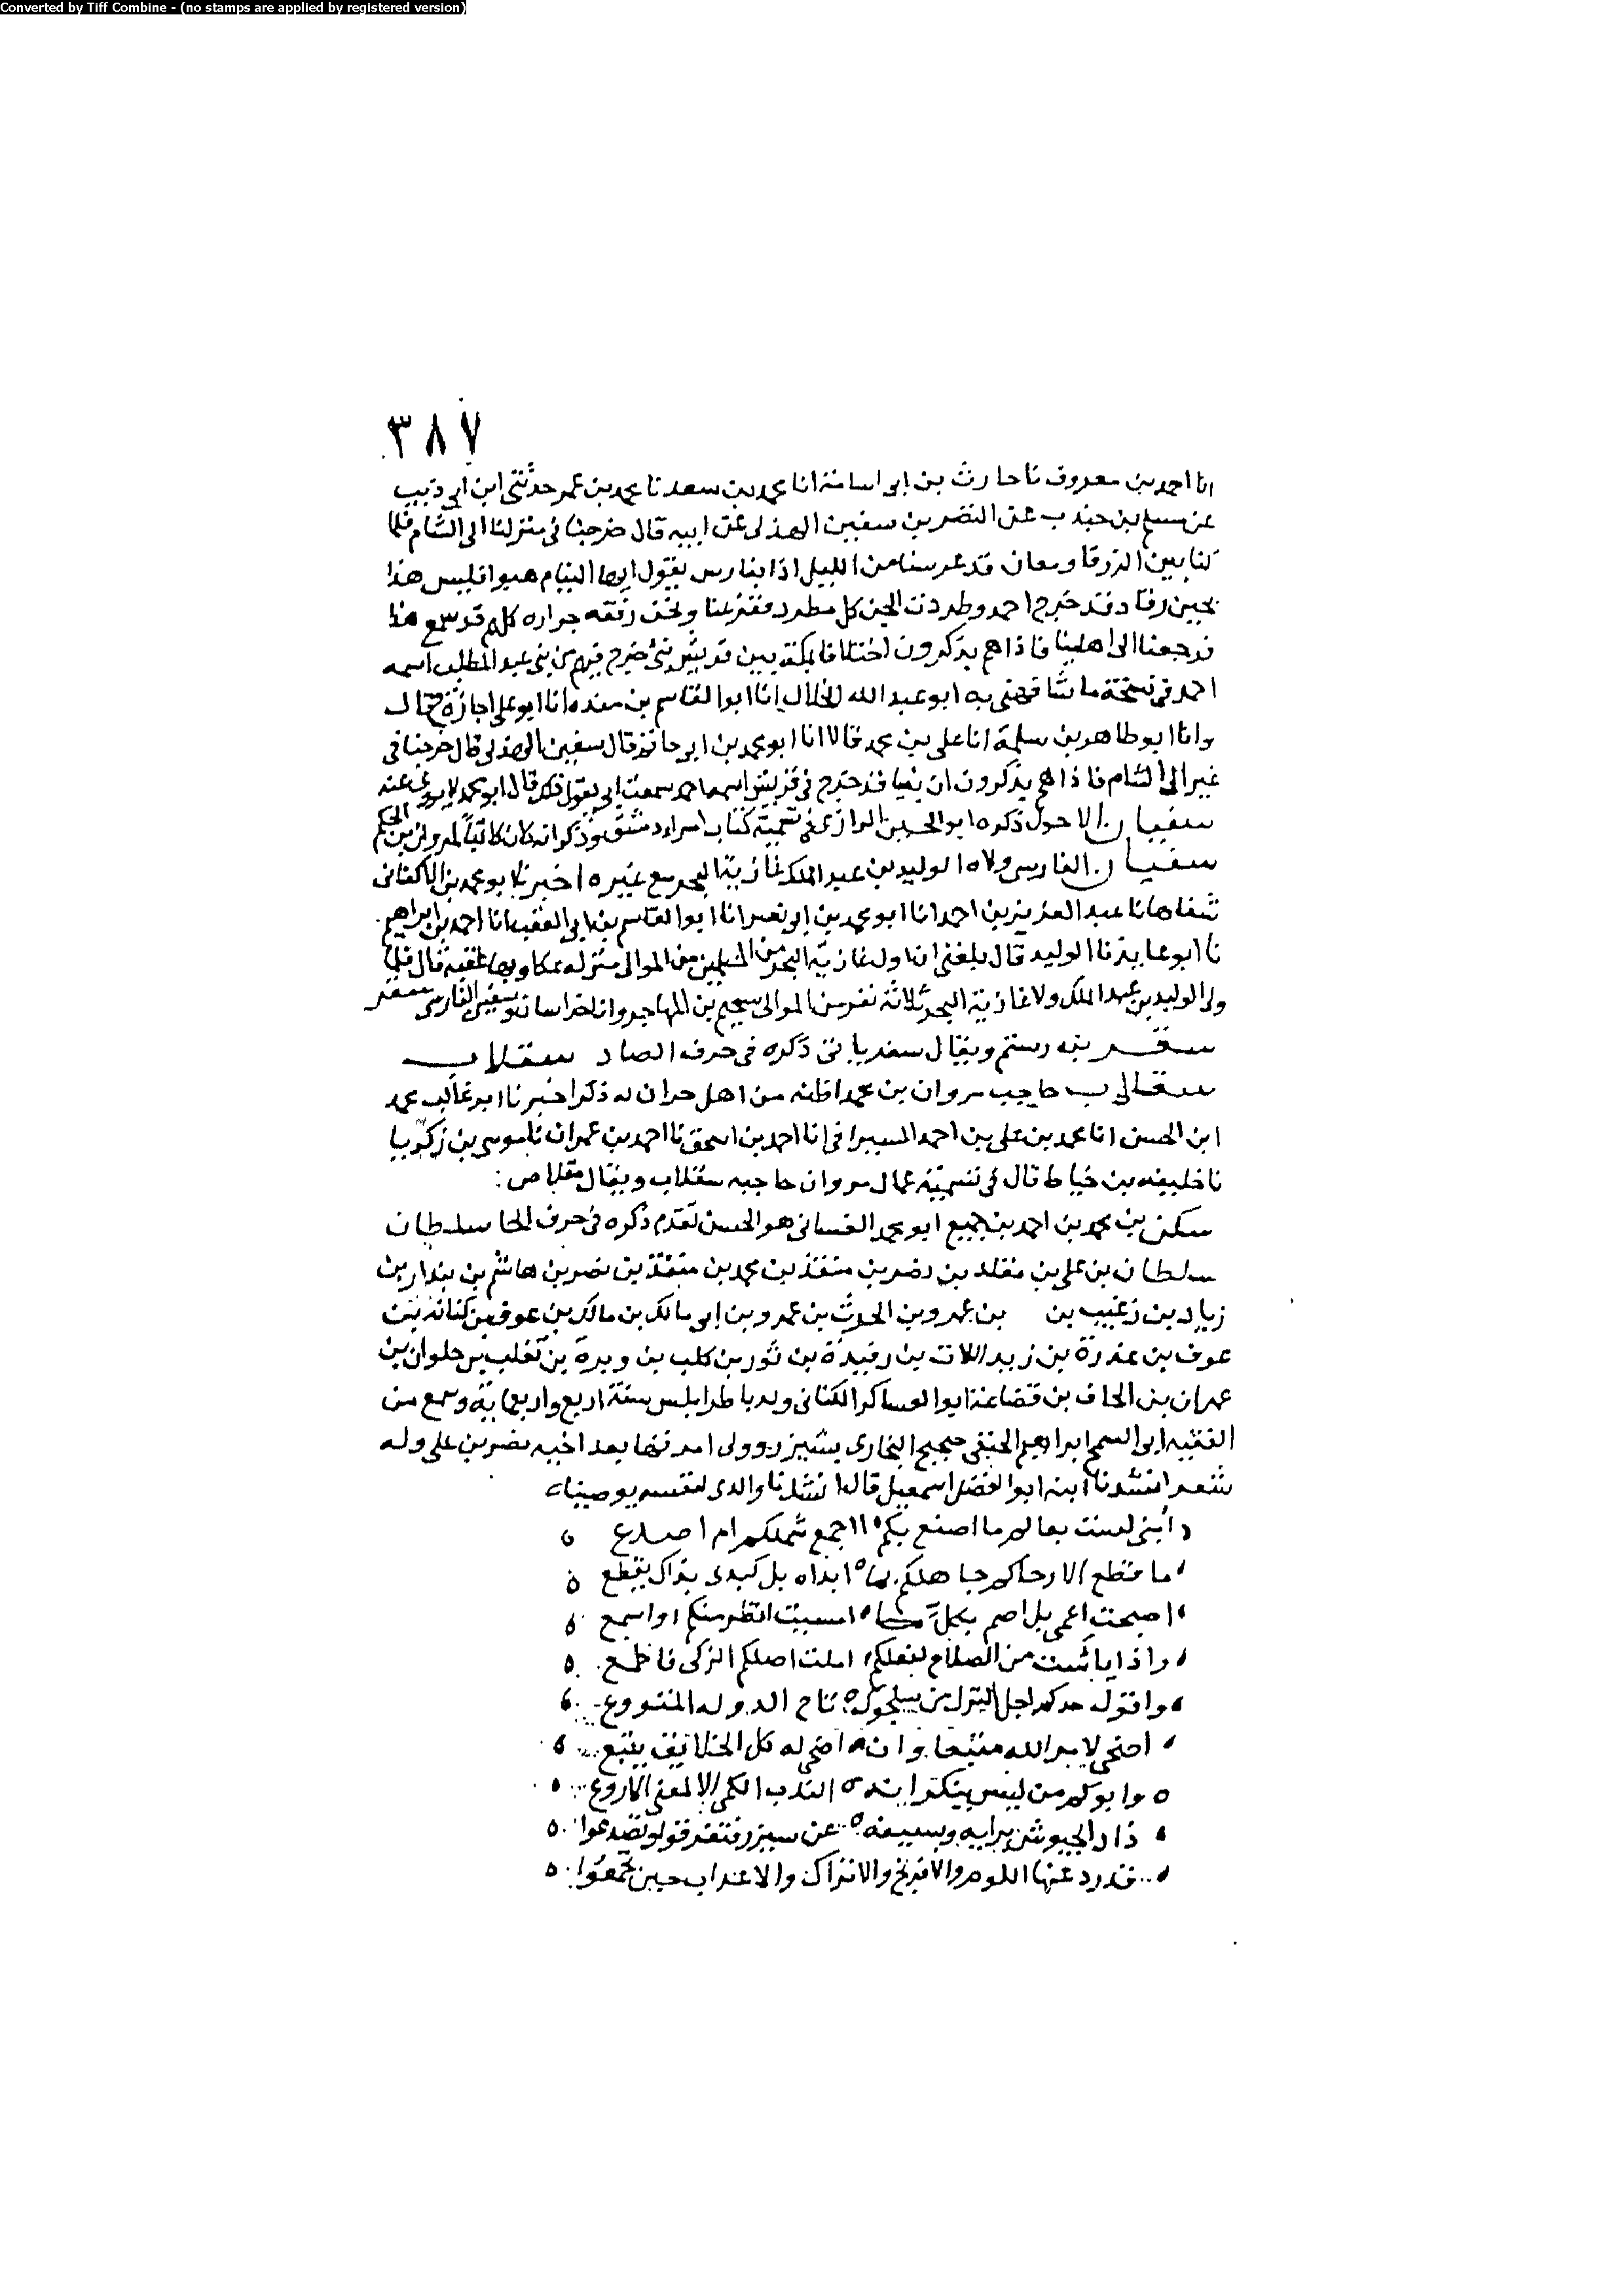 Converted by Tiff Combine - (no stamps are applied by registered version)
٣٨٧
انا احمد بن معروف نا حارث بن ابى اسامة انا محمد بن سعد نا محمد بن عمر حدثنى ابن ابى ذيب
عن مسلم بن جندب عن النضر بن سفين الهذلى عن ابيه قال خرجنا فى الى الشام فلما
كنا بين الزرقا ومعان قد عرسنا من الليل اذا بفارس يقول ايها النيام هبوا فليس هذا
بحين رقاد قد خرج احمد وطردت الجن كل مطرد ففزعنا ونحن رفقه جراره كلهم قد سمع هذا
فرجعنا الى اهلينا فاذا هم يذكرون اختلافا بمكة بين قريش بنى خرج فيهم من بنى عبد المطلب اسمه
احمد فى نسخة ما شافهنى به ابو عبد الله الخلال انا ابو القاسم بن منده انا ابو على اجازة ح قال
وانا ابو طاهر بن سلمة انا على بن محمد قالا انا ابو محمد بن ابى حاتم قال سفين الهذلى قال خرجنا فى
عير الى الشام فاذا هم يذكرون ان نبيا قد خرج فى قريش اسمه احمد سمعت ابى يقول ذلك قال ابو محمد لا عنه
سفيان الاحول ذكره ابو الحسين الرازى فى تسمية كتاب امراء دمشق وذكر انه كان كاتباً لمروان بن الحكم
سفيان الفارسى ولاه الوليد بن عبد الملك غازية البحر مع غيره اخبرنا ابو محمد بن الاكفانى
شفاها نا عبد العزيز بن احمد انا ابو محمد بن ابى نصر انا ابو القاسم بن ابى العقب انا احمد بن ابراهيم
نا ابو عابد نا الوليد قال بلغنى ان اول غازية البحر من المسلمين من الموالى منزله عكا وبها قال فلما
ولى الوليد بن عبد الملك ولا غازية البحر ثلاثة نفر من الموالى سحيم بن المهاجر وانا خراسان وسفين الفارسى سقر
سقر بن رستم ويقال سفر يا تى ذكره فى حرف الصاد سقلاب
سقالب حاجب مروان بن محمد اظنه من اهل حران له ذكر اخبرنا ابو غالب محمد
ابن الحسن انا محمد بن على بن احمد السيرافى انا احمد بن اسحق نا احمد بن عمران نا موسى بن زكريا
نا خليفه بن خياط قال فى تسمية عمال مروان حاجبه سقلاب ويقال مقلاص :
سكن بن محمد بن احمد بن جميع ابو محمد الغسانى هو الحسن تقدم ذكره فى حرف الحا سلطان
سلطان بن على بن مقلد بن نصر بن منقذ بن محمد بن منقذ بن نصر بن هاشم بن بندار بن
زياد بن زغيب بن بن عمرو بن الحرث بن عمرو بن ابى مالك بن مالك بن عوف بن كنانة بن
عوف بن عذرة بن زيد اللات بن رفيدة بن ثور بن كلب بن وبرة بن تغلب بن حلوان بن
عمران بن الحاف بن قضاعة ابو العساكر الكنانى ولد باطرابلس سنة اربع واربعماية وسمع من
الفقيه ابى السمح ابراهيم الحنفى صحيح البخارى بشيزر وولى امرتها بعد اخيه نصر بن على وله
شعر انشدنا ابنه ابو الفضل اسمعيل قال انشدنا والدى لنفسه يوصينا
ابنى لست بعالم ما اصنع بكم ااجمع شملكم ام اصدع
ما قطع الارحام جاهلكم بل كبدى بذاك يقطع
اصبحت اعمى بل اصم بكل امسيت انظر منكم او اسمع
واذا يائست من الصلاح لفعلكم املت اصلكم الزكى فاطمع
واقول جدكم اجل الترك من سلجوك تاج الدولة
اضحى لامر الله متبعا وان اضحى له كل الخلايق يتبع
وابوكم من ليس ينكر انه الندب الكمى الالمعى الاروع
ذاد الجيوش برايه وبسيفه عن سيزر فتفرقوا وتصدعوا
قد رد عنها الروم والافرنج والاتراك والاعراب حين تجمعوا